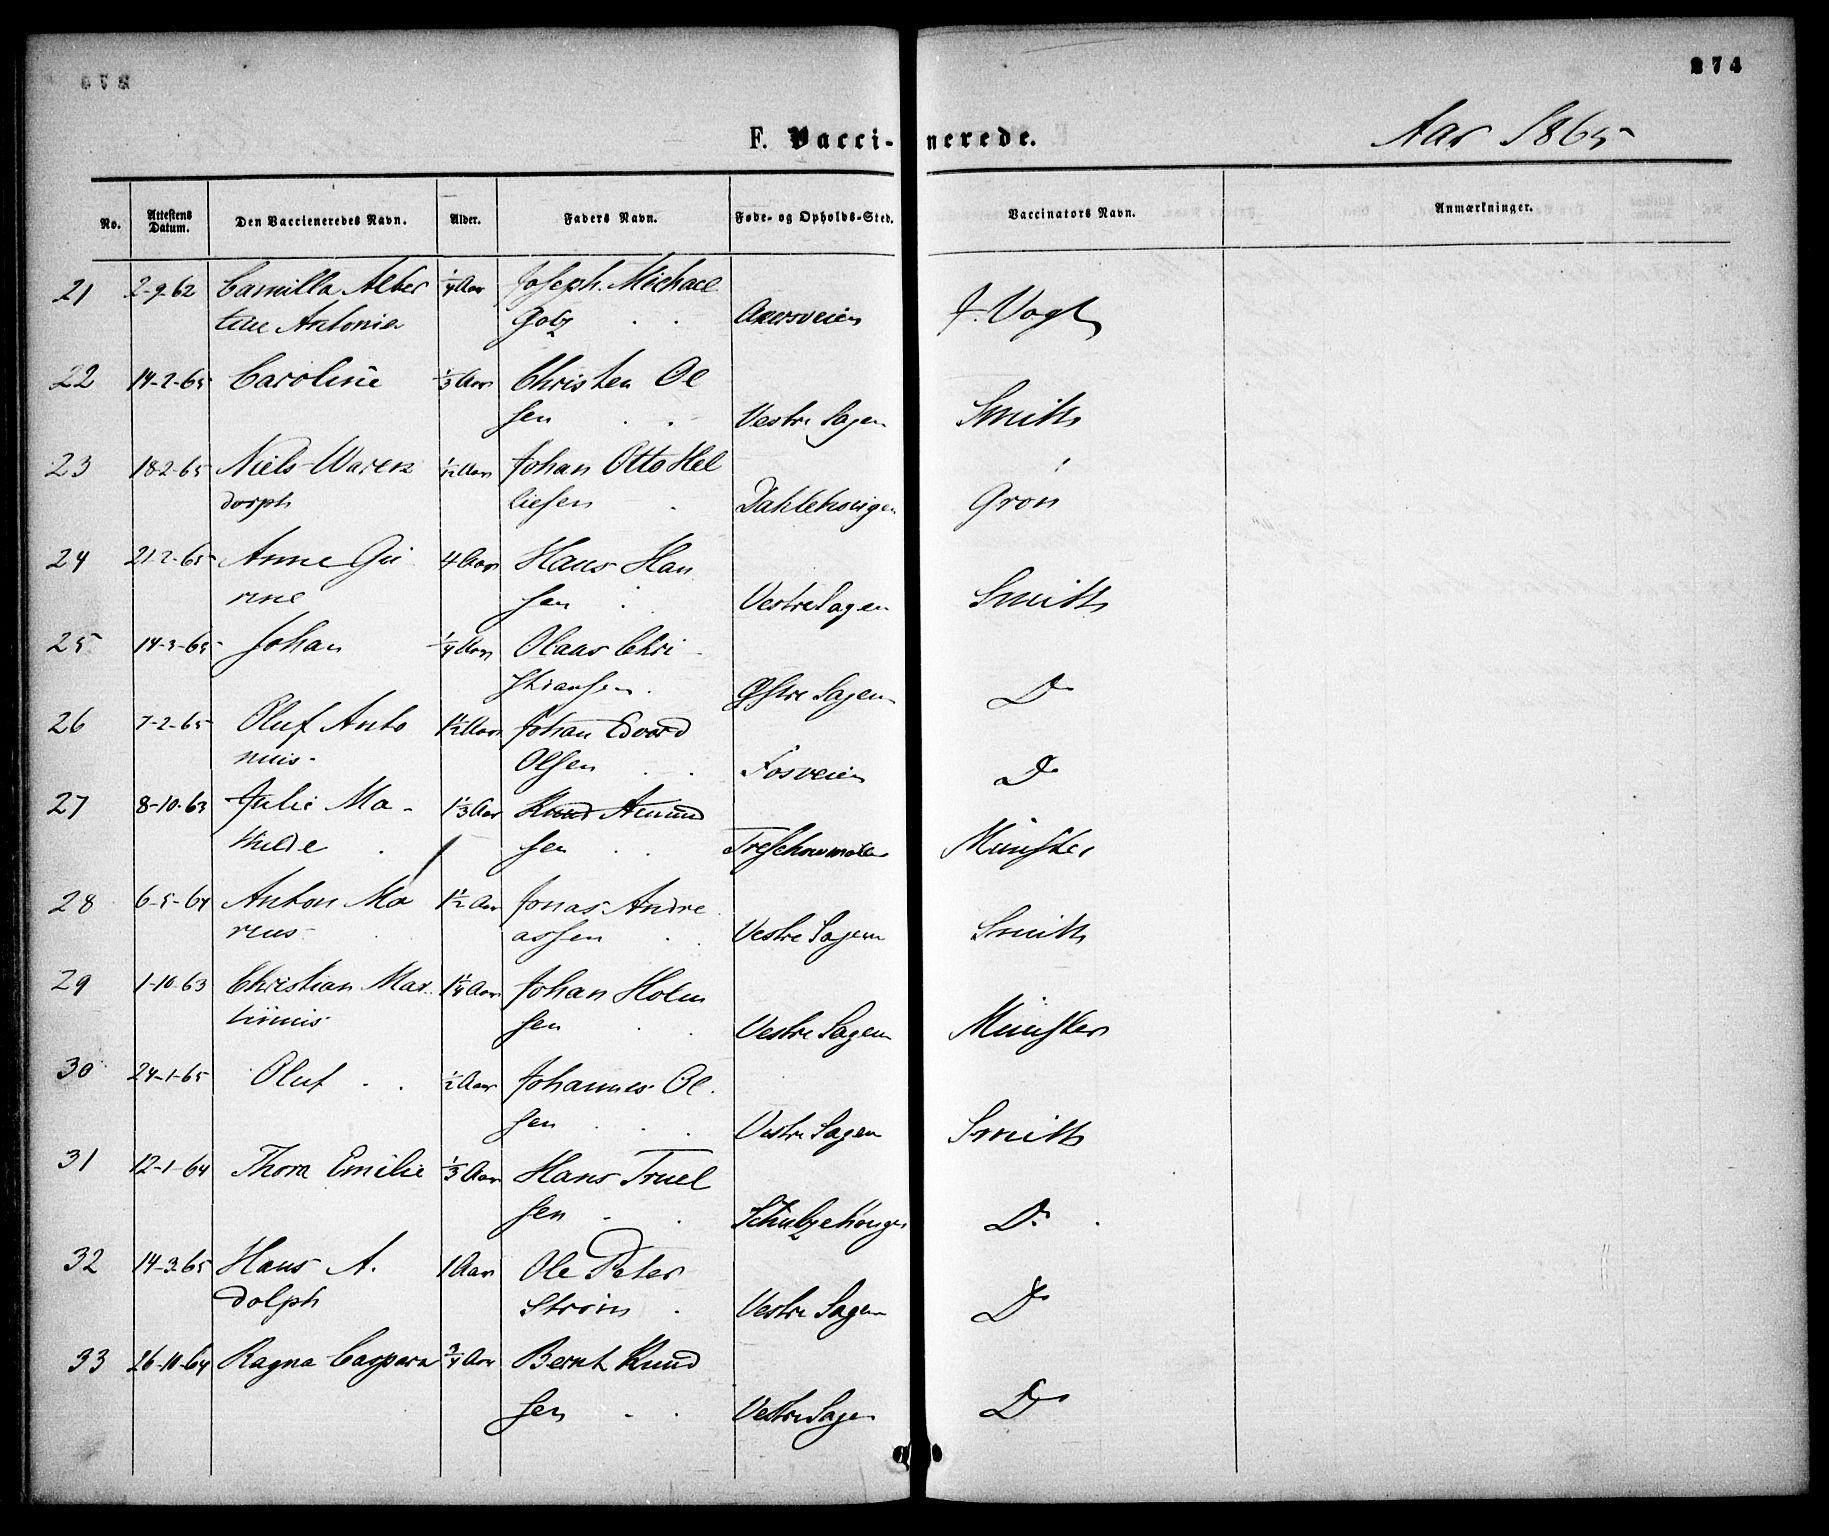 274
F. Vaccinerede.
Aar 1865
No. Attestens Datum. Den Vaccieneredes Navn. Alder. Faders Navn. Føde- og Opholds-Sted. Vaccinators Navn. Anmærkninger.
21 2-9-62 Camilla Alber ¼ Aar Joseph Michael
tine Antonie Golz Akersveien J. Vogt
22 14-2-65 Caroline ⅓ Aar Christen Ol
sen Vestre Sagen Smith
23 18-2-65 Niels Waren Johan Otto Hel
dorph liesen Dahlehougen Grøn
24 21-2-65 Anne Gu 4 Aar Hans Han
rine sen Vestre Sagen Smith
25 14-3-65 Johan ¼ Aar Olaus Chri
stiansen Østre Sagen Do
26 7-2-65 Oluf Anto 1½ Aar Johan Edvard
nius Olsen Fosveien Do
27 8-10-63 Julie Ma- 1⅓ Aar Knud Amund
thilde sen Treschowmølen Münster
28 6-5-64 Anton Ma 1½ Aar Jonas Andre
reus assen Vestre Sagen Smith
29 1-10-63 Christian Mar- 1¼ Aar Johan Holm
tinius sen Vestre Sagen Münster
30 24-1-65 Oluf ½ Aar Johannes Ol
sen Vestre Sagen Smith
31 12-1-64 Thora Emilie ⅓ Aar Hans Truel
sen Schulzehougen Do
32 14-3-65 Hans A. 1 Aar Ole Peter
dolph Strøm Vestre Sagen Do
33 26-10-64 Ragna Caspara ¾ Aar Bernt Knud
sen Vestre Sagen Do